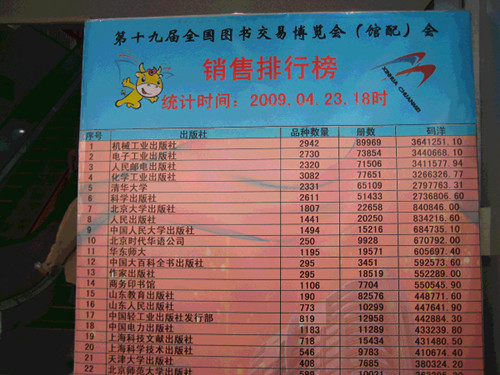 第十九届全国图书交易博览会（馆配）会
销售排行榜
XINHUA CHUANMEI
统计时间：2009.04.23.18时
序号 出版社 品种数量 册数 码洋
1 机械工业出版社 2942 89969 3641251.10
2 电子工业出版社 2730 73854 3440668.10
3 人民邮电出版社 2320 71506 3411577.94
4 化学工业出版社 3082 77651 3266326.77
5 清华大学 2331 65109 2797763.31
6 科学出版社 2611 51433 2736806.60
7 北京大学出版社 1807 22658 840846.00
8 人民出版社 1441 20250 834216.60
9 中国人民大学出版社 1494 15216 684735.10
10 北京时代华语公司 250 9928 670792.00
11 华东师大 1195 19571 605697.40
12 中国大百科全书出版社 295 3451 592573.60
13 作家出版社 295 18519 552289.00
14 商务印书馆 1106 7704 550545.90
15 山东教育出版社 190 82576 448771.60
16 山东人民出版社 773 10299 447641.90
17 中国轻工业出版社发行部 819 12958 442884.30
18 中国电力出版社 1183 11289 433239.80
19 上海科技文献出版社 718 15434 431480.50
20 上海科学技术出版社 546 9783 410674.40
21 天津大学出版社 408 7685 380324.20
22 北京师范大学出版社